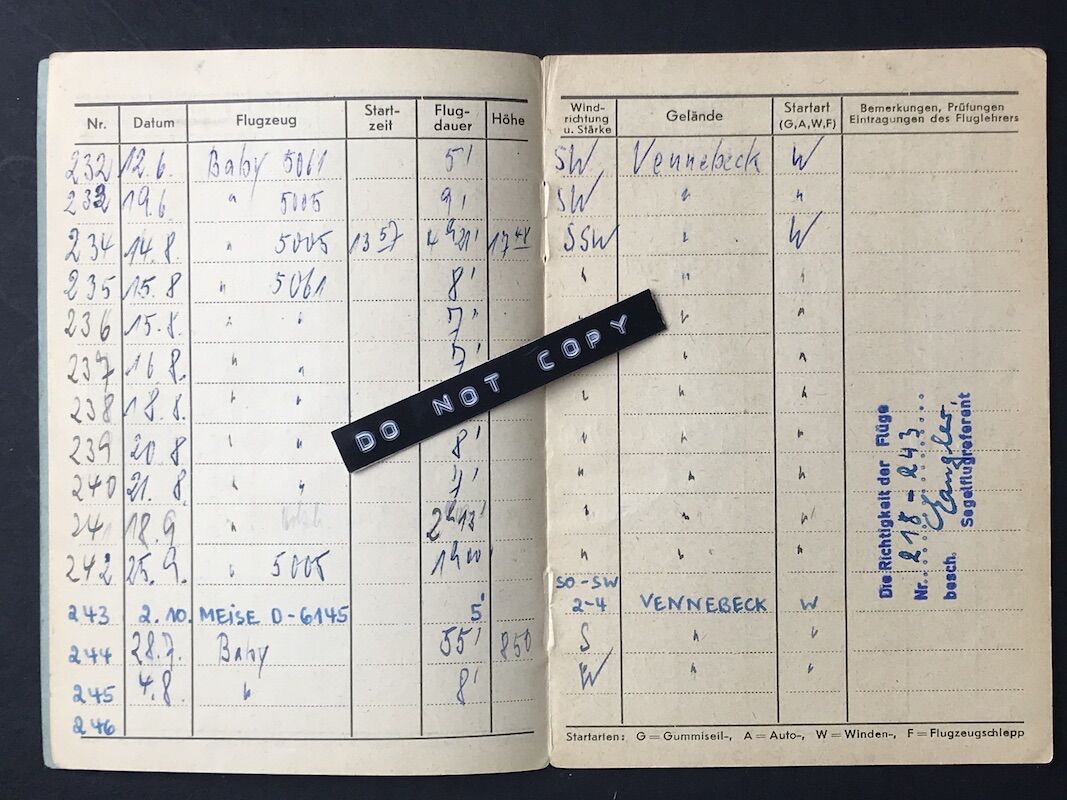 Nr. Datum Flugzeug Start-zeit Flug-dauer Höhe Wind-richtung u. Stärke Gelände Startart (G,A,W,F) Bemerkungen, Prüfungen Eintragungen des Fluglehrers
232 12.6. Baby 5061 5' SW Vennebeck W
233 19.6 " 5005 9' SW " "
234 14.8. " 5005 13 57 4h 21' 17 48 SSW " W
235 15.8 " 5061 8' " " "
236 15.8. " " 7' " "
237 16 8. " " 7' " "
238 18.8. " " " " "
239 20 8 " " 8' " " "
240 21. 8. " " 7' " " "
241 18.9 " 2h 13' " "
242 25.9. " 5005 1h 00' " " "
243 2.10. MEISE D-6145 5' SO-SW 2-4 VENNEBECK W
244 28.7. Baby 55' 850 S " "
245 4.8. " 8' W " "
246
DO NOT COPY
Die Richtigkeit der Flüge
Nr. 218 - 243
besch.
Segelflugreferent
Startarten: G = Gummiseil-, A = Auto-, W = Winden-, F = Flugzeugschlepp